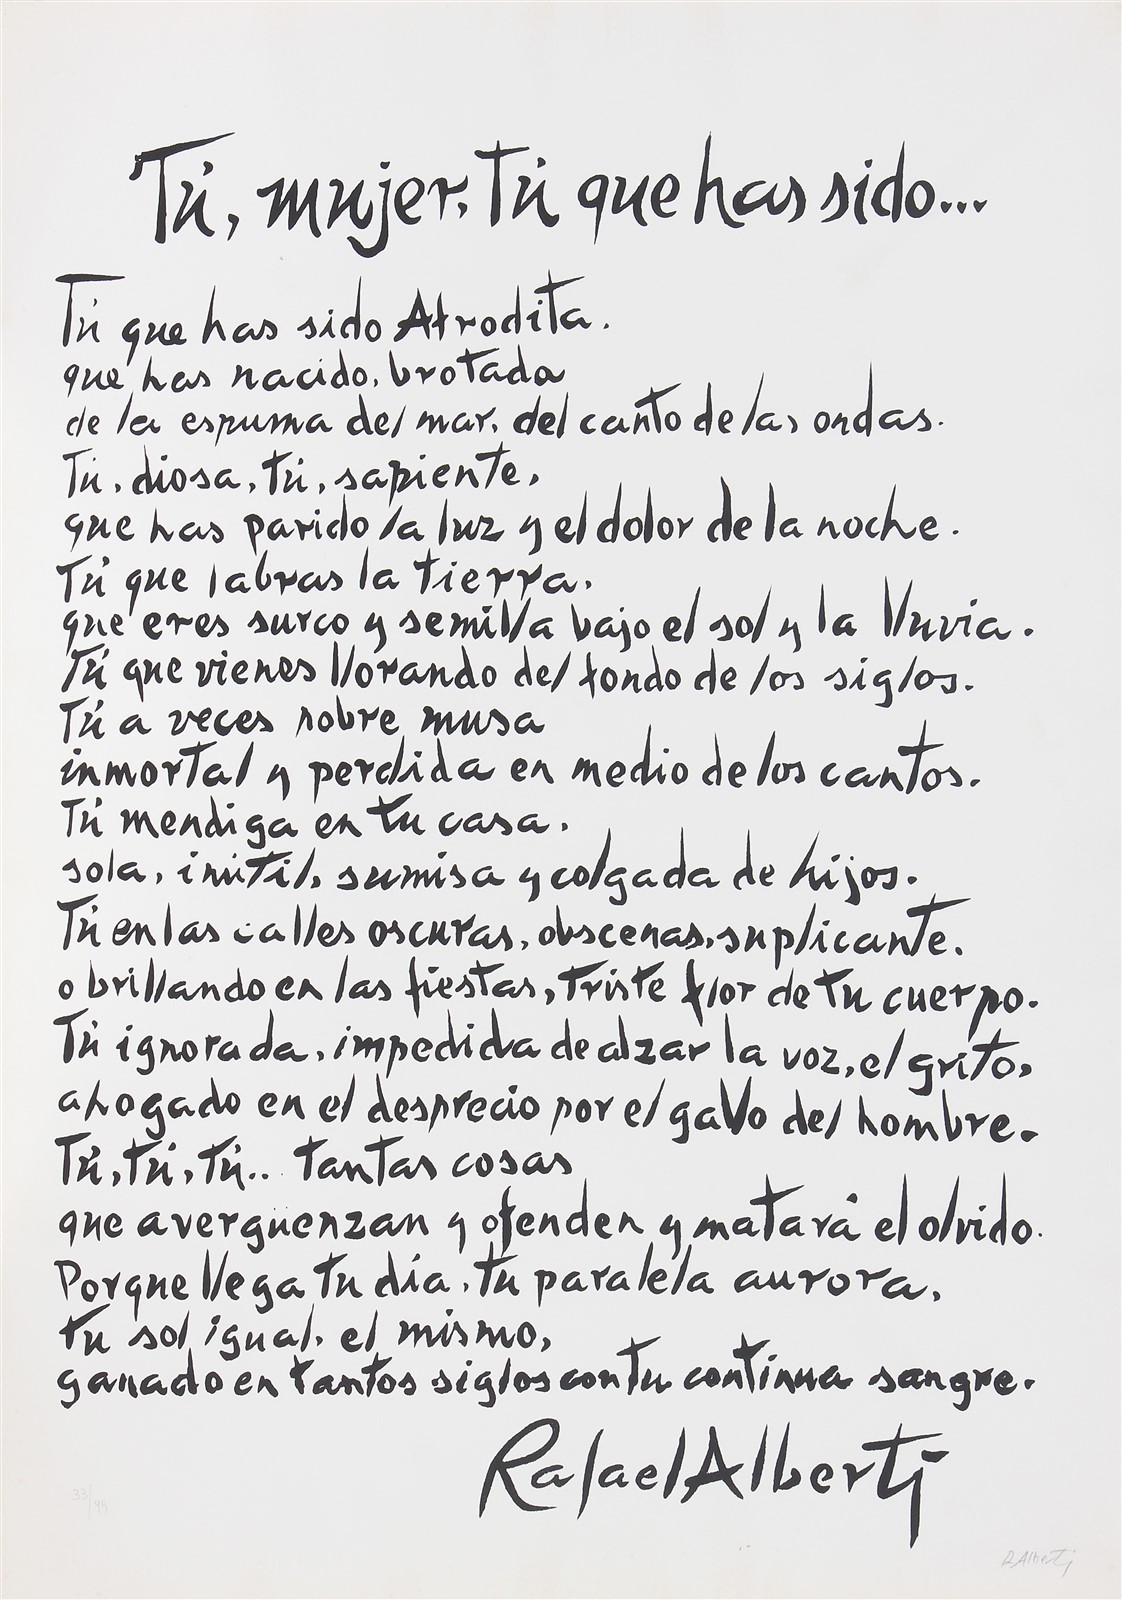 Tú, mujer, Tú que has sido...
Tú que has sido Afrodita.
que has nacido, brotada
de la espuma del mar, del canto de las ondas.
Tú, diosa, tú, sapiente,
que has parido la luz y el dolor de la noche.
Tú que labras la tierra.
que eres surco y semilla bajo el sol y la lluvia.
Tú que vienes llorando del fondo de los siglos.
Tú a veces pobre musa
inmortal y perdida en medio de los cantos.
Tú mendiga en tu casa.
sola, inútil, sumisa y colgada de hijos.
Tú en las calles oscuras, obscenas, suplicante.
o brillando en las fiestas, triste flor de tu cuerpo.
Tú ignorada, impedida de alzar la voz, el grito,
ahogado en el desprecio por el gallo del hombre.
Tú, tú, tú.. tantas cosas
que avergüenzan y ofenden y matará el olvido.
Porque llega tu día, tu paralela aurora,
tu sol igual, el mismo,
ganado en tantos siglos con tu continua sangre.
Rafael Alberti
33/95
R Alberti